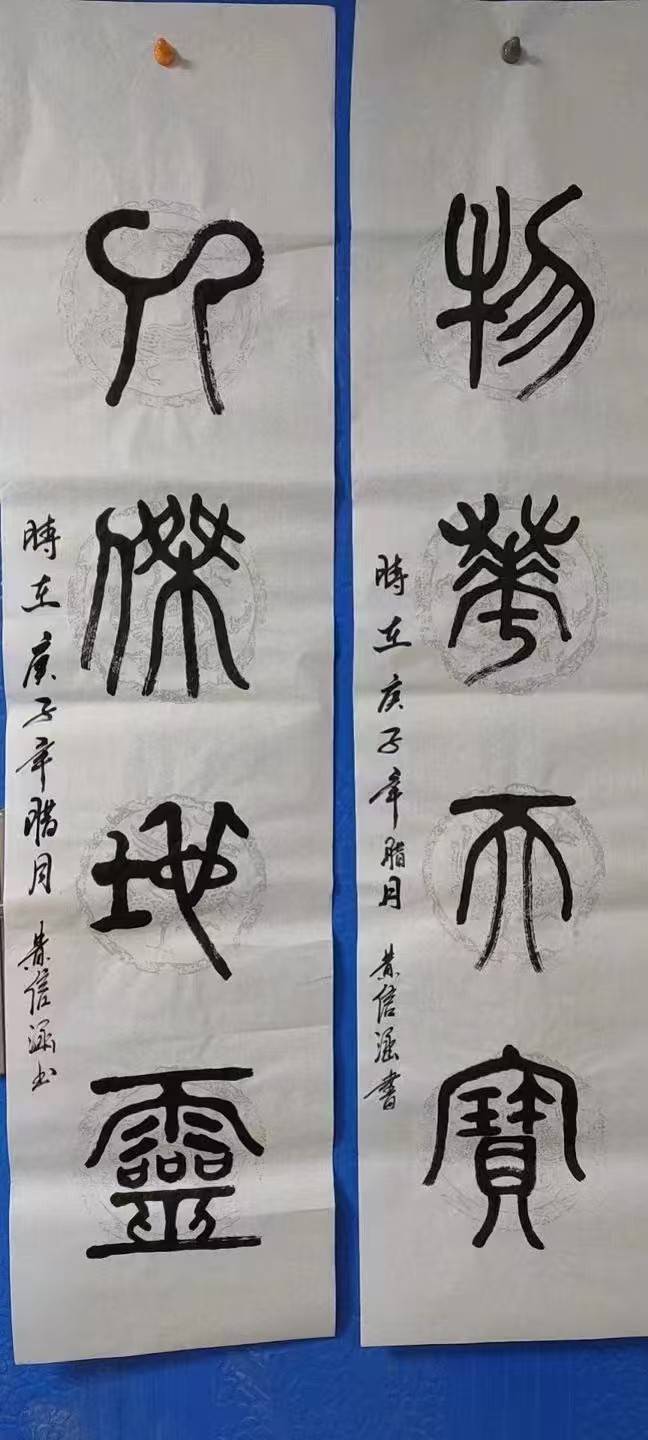 物華天寶
時在庚子年腊月 黄信涵書
人傑地靈
時在庚子年腊月 黄信涵书